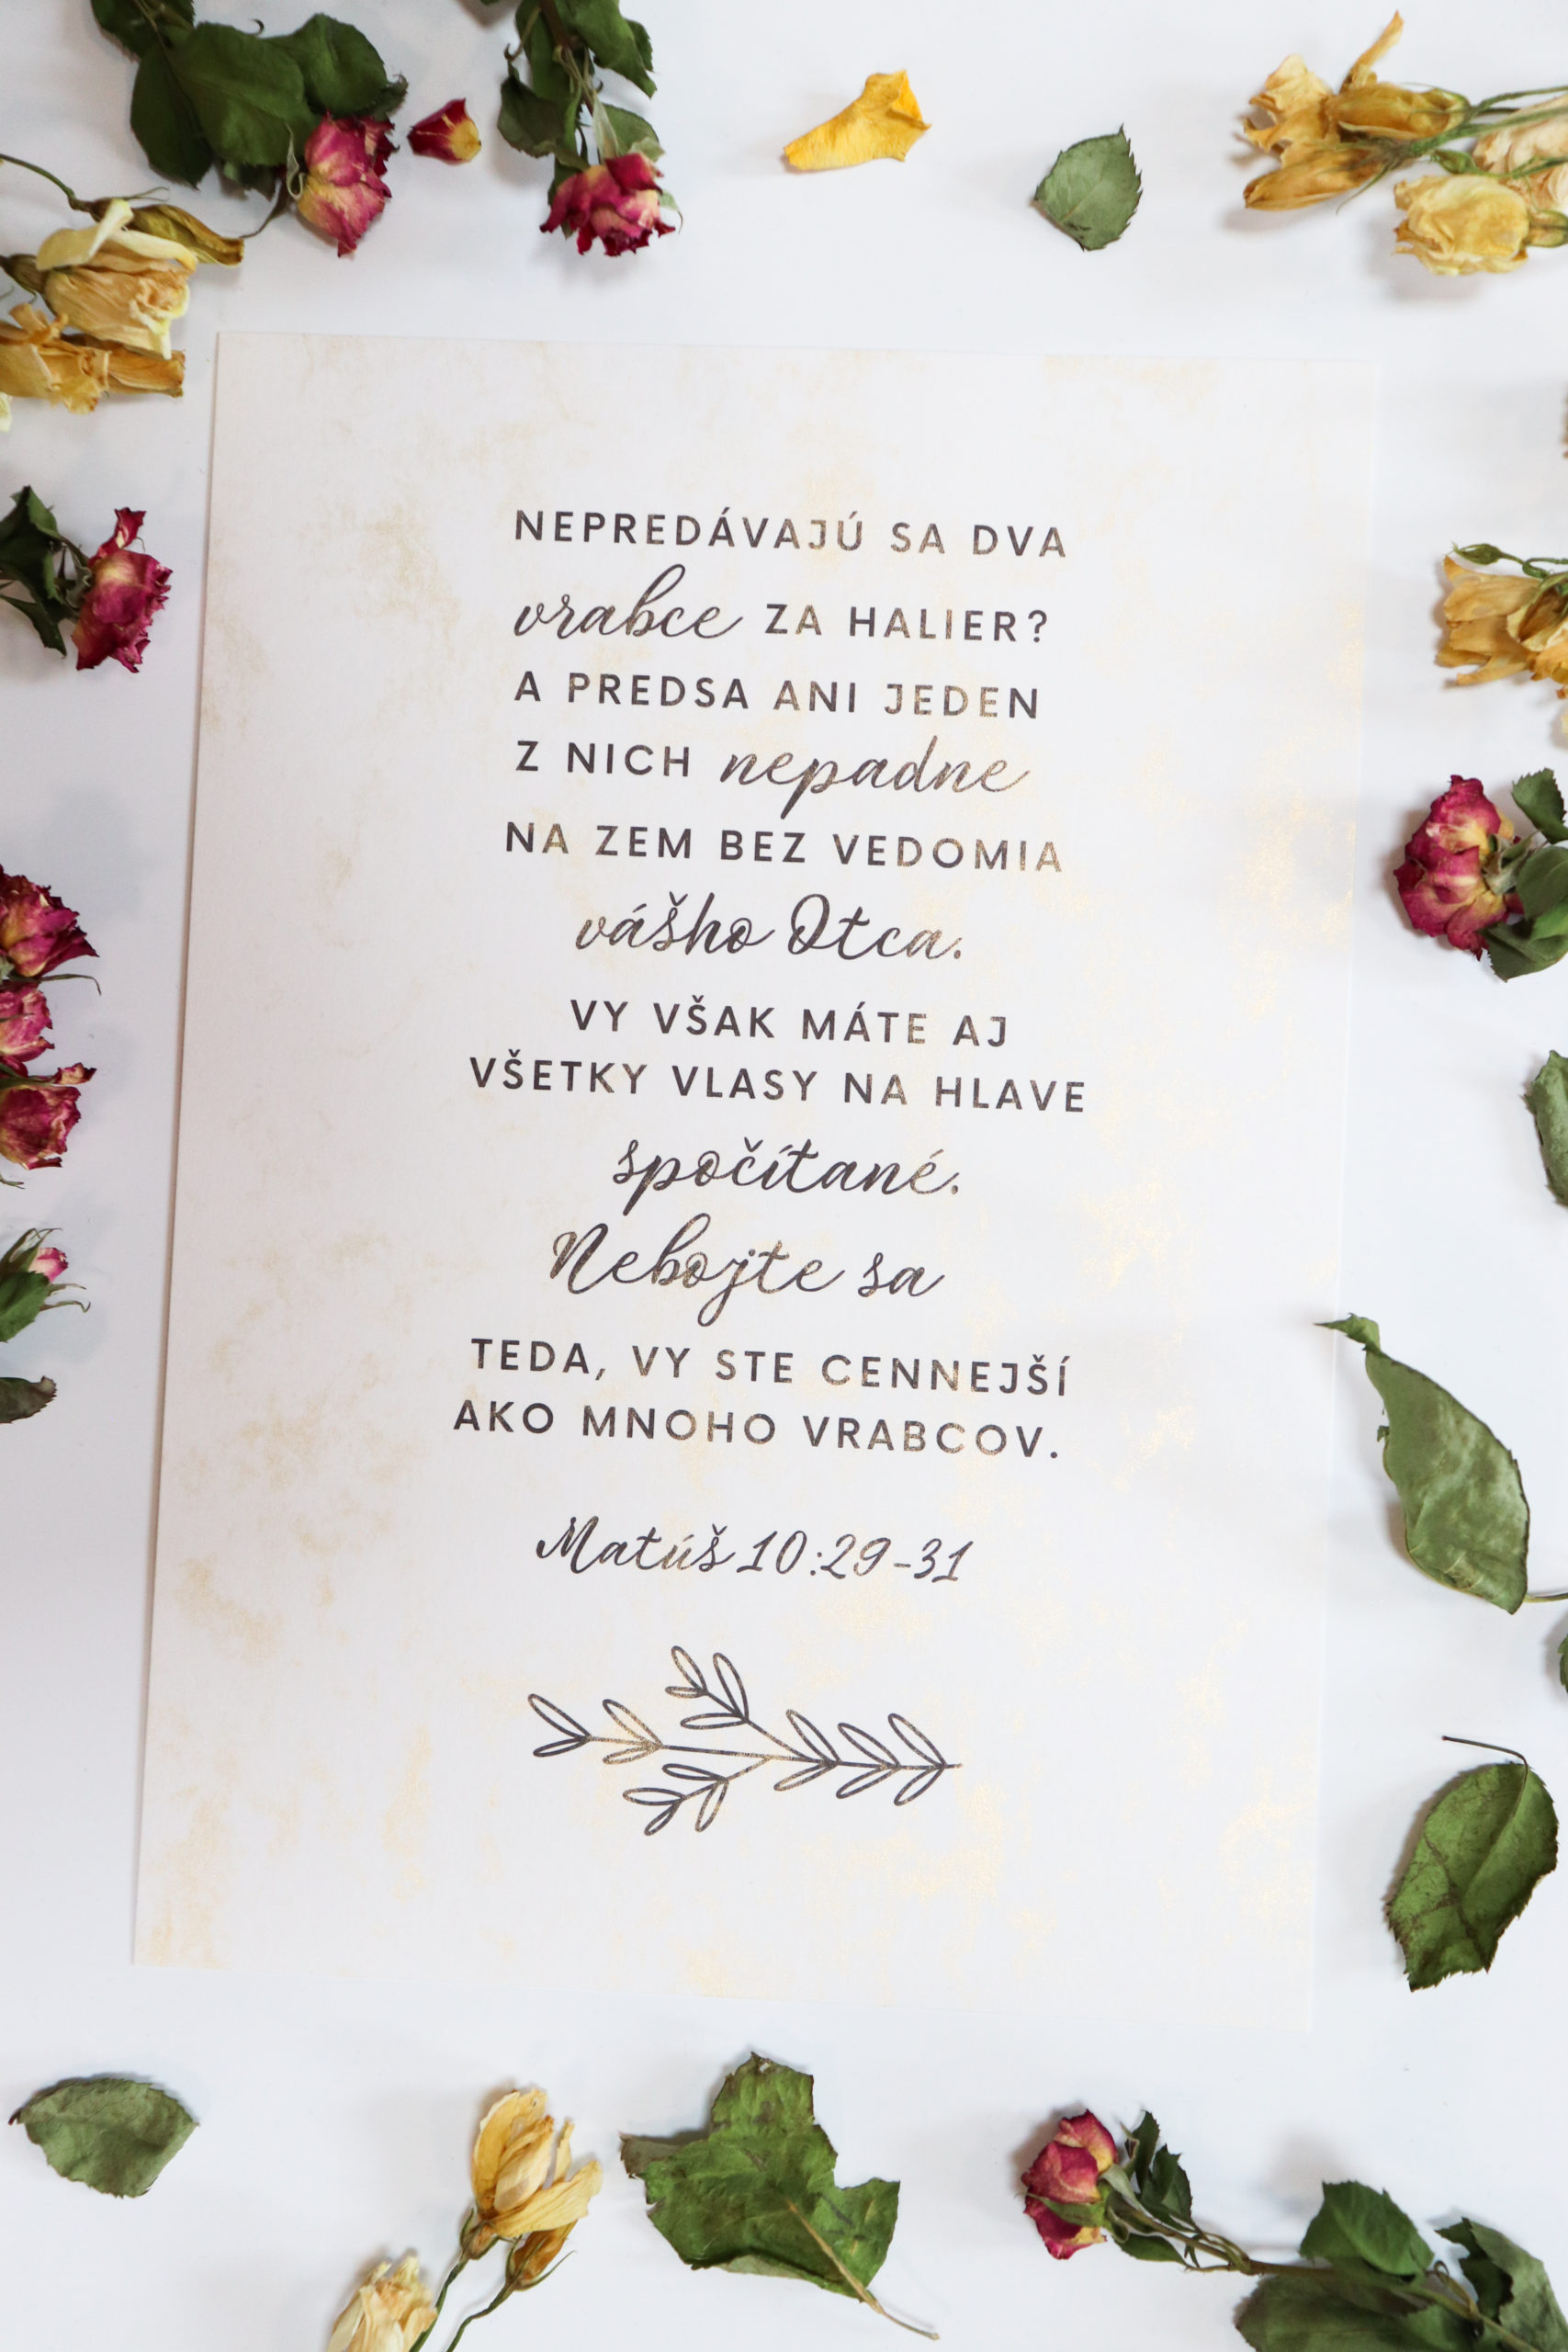 NEPREDÁVAJÚ SA DVA
vrabce ZA HALIER?
A PREDSA ANI JEDEN
Z NICH nepadne
NA ZEM BEZ VEDOMIA
vášho Otca.
VY VŠAK MÁTE AJ
VŠETKY VLASY NA HLAVE
spočítané.
Nebojte sa
TEDA, VY STE CENNEJŠÍ
AKO MNOHO VRABCOV.
Matúš 10:29-31